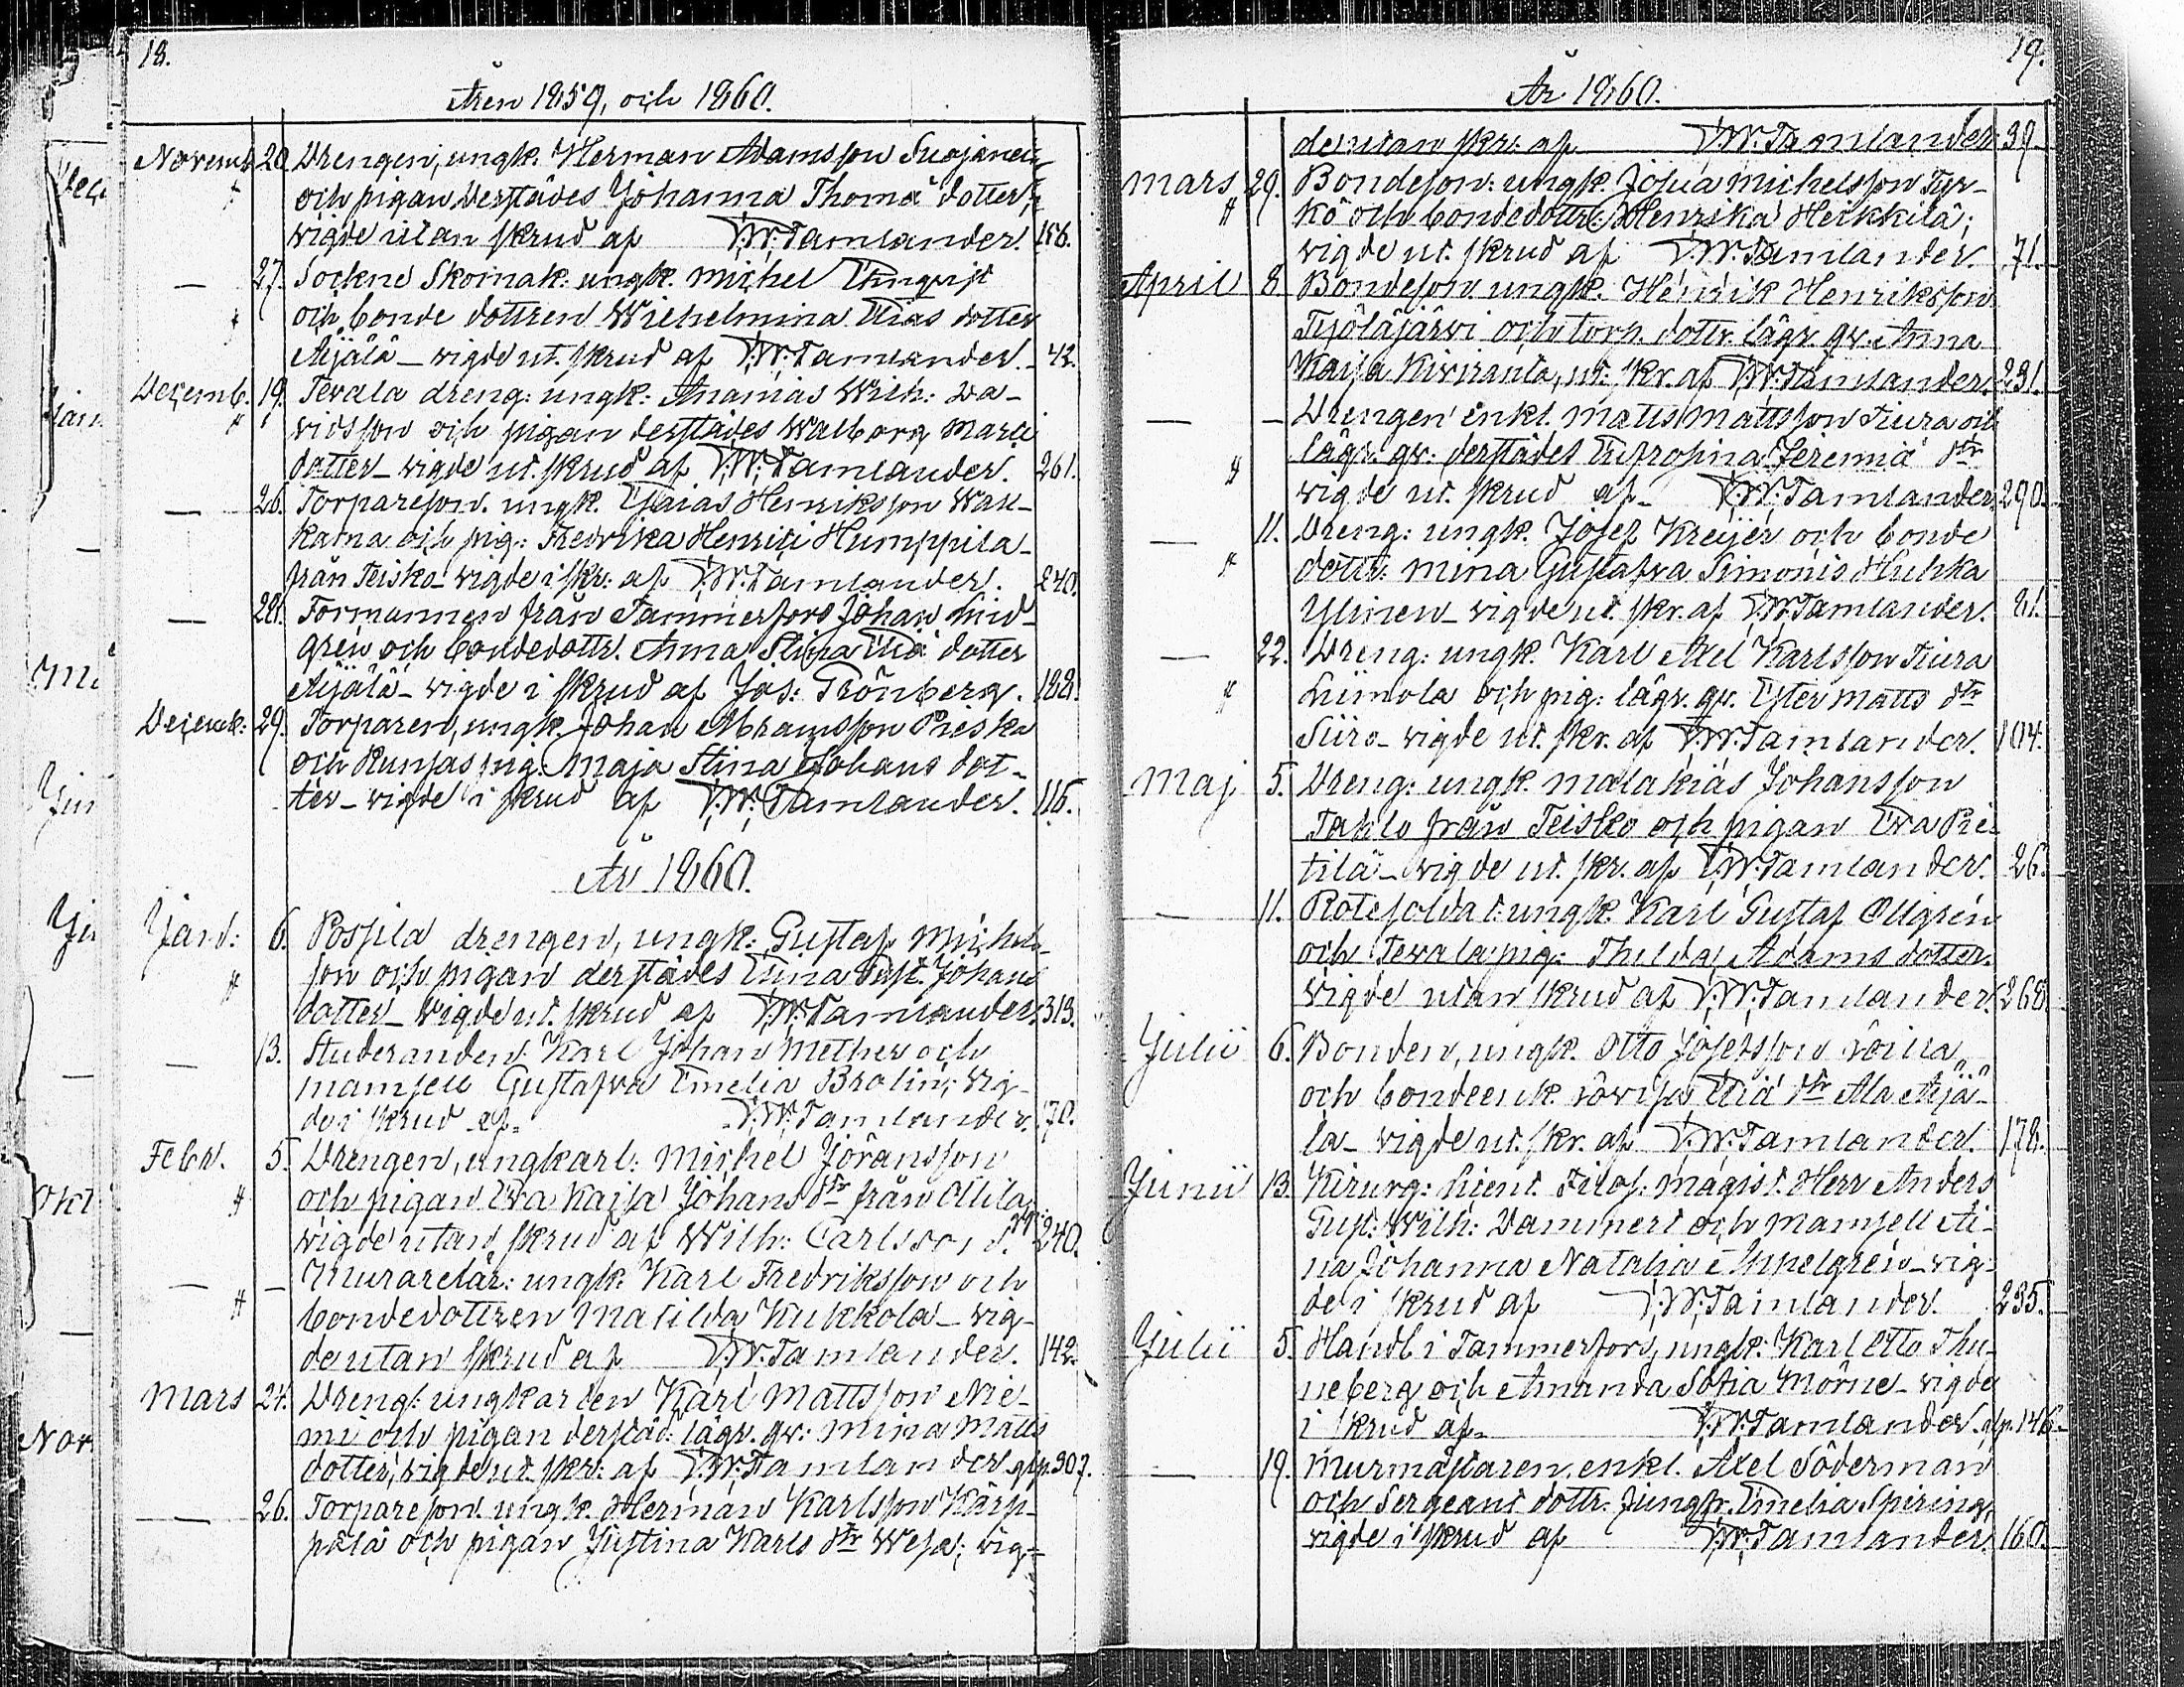 18.
Åren 1859, och 1860.
Novemb. 20. Drengen, ungk. Herman Adamsson Suojanen
och pigan derstädes Johanna Thomæ dotter,
vigde utan skrud af F.W. Tamlander. 156.
— 27. Sockne Skomak. ungk. Michel Engqvist
och bonde dottren Wilhelmina Elias dotter
Äijälä – vigde ut. skrud af F.W. Tamlander. 42.
Decemb. 19. Tevala dreng: ungk: Ananias Wilh: Da-
vidsson och pigan derstädes Walborg Matts
dotter – vigde ut. skrud af F.W. Tamlander. 261.
— 26. Torpareson. ungk. Esaias Henriksson Wak-
katna och pig: Fredrika Henrici Humppila
från Teisko – vigde i skr: af F.W. Tamlander. 240.
— 28. Formannen från Tammerfors Johan Lind-
gren och bondedottr. Anna Stina Eliæ dotter
Äijälä – vigde i skrud af Jos: Grönberg. 188.
Decemb: 29. Torparen, ungk. Johan Abramsson Pieska
och Runsas pig. Maja Stina Johans dot-
ter – vigde i skrud af F.W. Tamlander. 116.
År 1860.
Jan: 6. Possila drengen, ungk: Gustaf Michels-
son och pigan derstädes Eina Gust. Johans
dotter – vigde ut. skrud af F.W. Tamlander. 313.
— 13. Studeranden Karl Johan Mether och
mamsell Gustafva Emelia Brolin; vig-
de i skrud af F.W. Tamlander. 170.
Febr. 5. Drengen, ungkarl: Michel Jöransson
och pigan Eva Kajsa Johans dtr från Ollila,
vigde utan skrud af Wilh: Carlsson. 240.
— – Murarelär: ungk: Karl Fredriksson och
bondedottren Matilda Kukkola – vig-
de utan skrud af F.W. Tamlander. 142.
Mars 24. Dreng: ungkarlen Karl Mattsson Nie-
mi och pigan derstäd: lägr. qv: Mina Matts
dotter, vigde ut. skr: af F.W. Tamlander. 307.
— 26. Torpareson. ungk. Herman Karlsson Kärp-
pälä och pigan Justina Karls dtr Wesa; vig-
19.
År 1860.
de utan skr: af F.W. Tamlander. 39.
Mars 29. Bondeson: ungk. Josua Michelsson Tyr-
kö och bondedottr: Henrika Heikkilä;
vigde ut. skrud af F.W. Tamlander. 71.
April 8. Bondeson. ungk. Henrik Henriksson
Työläjärvi och torp. dottr. lägr. qv. Anna
Kajsa Kiviranta, ut: skr. af F.W. Tamlander. 231.
— – Drengen enkl. Matts Mattsson Tiura och
lägr. qv: derstädes Eufrosina Jeremiæ dtr
vigde ut. skrud af F.W. Tamlander. 290.
— 11. Dreng: ungk. Josef Kreijer och bonde
dottr: Mina Gustafva Simonis Huhka
Ylinen – vigde ut. skr. af F.W. Tamlander. 81.
— 22. Dreng: ungk. Karl Axel Karlsson Tiura
Liimola och pig: lägr. qv. Ester Matts dtr
Siiro – vigde ut. skr. af F.W. Tamlander. 104.
Maj 5. Dreng: ungk. Malakias Johansson
Takko från Teisko och pigan Eva Pie-
tilä – vigde ut. skr. af F.W. Tamlander. 26.
— 11. Rotesoldat: ungk. Karl Gustaf Ollgrén
och Tevala pig: Thilda Adams dotter.
vigde utan skrud af F.W. Tamlander. 268.
Julii 6. Bonden, ungk. Otto Josefsson
och bondeenk. Lovisa Eliæ dtr Ala Äijä-
lä – vigde ut. skr. af F.W. Tamlander. 178.
Junii 13. Kirurg: Licent. Filos: magist. Herr Anders
Gust: Wilh: Dammert och mamsell Ai-
na Johanna Natalia Appelgrén – vig-
de i skrud af F.W. Tamlander. 235.
Julii 5. Handl. i Tammerfors, ungk: Karl Otto Thu-
neberg och Amanda Sofia Mörne – vigde
i skrud af F.W. Tamlander. 146.
— 19. Murmästaren, enkl. Axel Söderman
och Sergeant dottr. Jungfr. Emelia Spiring,
vigde i skrud af F.W. Tamlander. 160.